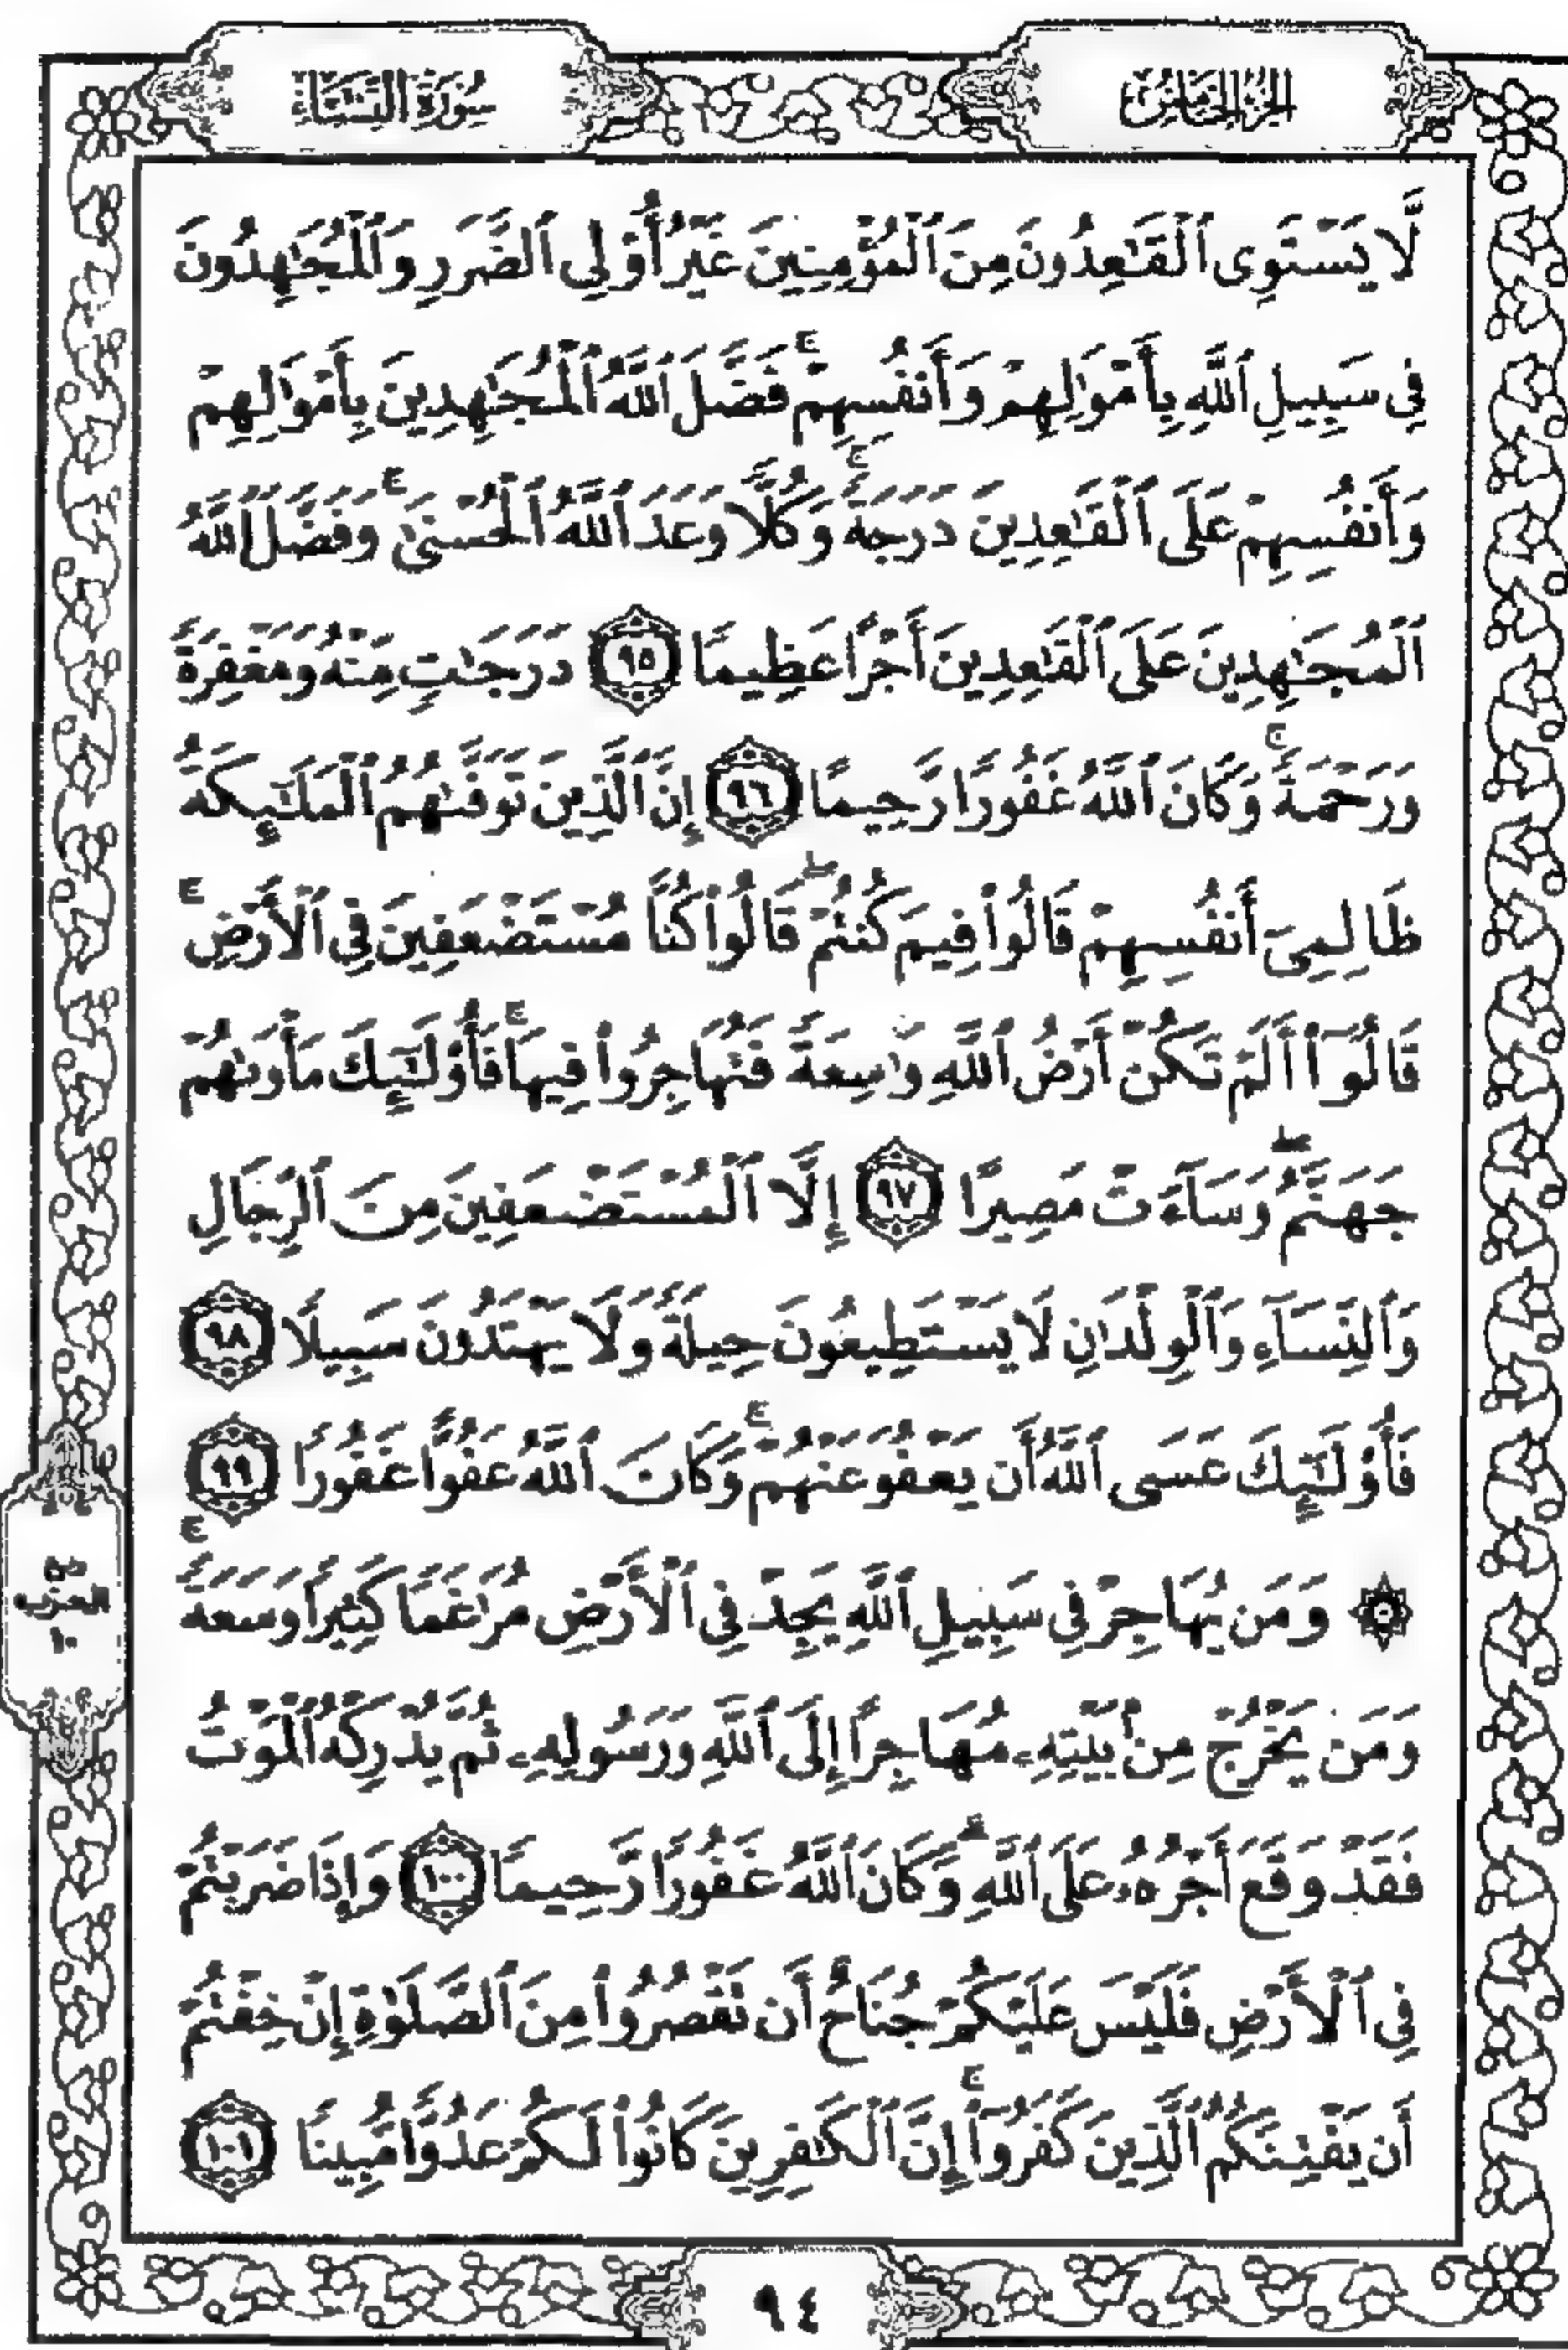 الجزء الخامس
سورة النساء
لَّا يَسْتَوِى ٱلْقَـٰعِدُونَ مِنَ ٱلْمُؤْمِنِينَ غَيْرُ أُو۟لِى ٱلضَّرَرِ وَٱلْمُجَـٰهِدُونَ
فِى سَبِيلِ ٱللَّهِ بِأَمْوَٰلِهِمْ وَأَنفُسِهِمْ ۚ فَضَّلَ ٱللَّهُ ٱلْمُجَـٰهِدِينَ بِأَمْوَٰلِهِمْ
وَأَنفُسِهِمْ عَلَى ٱلْقَـٰعِدِينَ دَرَجَةً ۚ وَكُلًّا وَعَدَ ٱللَّهُ ٱلْحُسْنَىٰ ۚ وَفَضَّلَ ٱللَّهُ
ٱلْمُجَـٰهِدِينَ عَلَى ٱلْقَـٰعِدِينَ أَجْرًا عَظِيمًا ٩٥ دَرَجَـٰتٍ مِّنْهُ وَمَغْفِرَةً
وَرَحْمَةً ۚ وَكَانَ ٱللَّهُ غَفُورًا رَّحِيمًا ٩٦ إِنَّ ٱلَّذِينَ تَوَفَّىٰهُمُ ٱلْمَلَـٰٓئِكَةُ
ظَالِمِىٓ أَنفُسِهِمْ قَالُوا۟ فِيمَ كُنتُمْ ۖ قَالُوا۟ كُنَّا مُسْتَضْعَفِينَ فِى ٱلْأَرْضِ ۚ
قَالُوٓا۟ أَلَمْ تَكُنْ أَرْضُ ٱللَّهِ وَٰسِعَةً فَتُهَاجِرُوا۟ فِيهَا ۚ فَأُو۟لَـٰٓئِكَ مَأْوَىٰهُمْ
جَهَنَّمُ ۖ وَسَآءَتْ مَصِيرًا ٩٧ إِلَّا ٱلْمُسْتَضْعَفِينَ مِنَ ٱلرِّجَالِ
وَٱلنِّسَآءِ وَٱلْوِلْدَٰنِ لَا يَسْتَطِيعُونَ حِيلَةً وَلَا يَهْتَدُونَ سَبِيلًا ٩٨
فَأُو۟لَـٰٓئِكَ عَسَى ٱللَّهُ أَن يَعْفُوَ عَنْهُمْ ۚ وَكَانَ ٱللَّهُ عَفُوًّا غَفُورًا ٩٩
۞ وَمَن يُهَاجِرْ فِى سَبِيلِ ٱللَّهِ يَجِدْ فِى ٱلْأَرْضِ مُرَٰغَمًا كَثِيرًا وَسَعَةً ۚ
وَمَن يَخْرُجْ مِنۢ بَيْتِهِۦ مُهَاجِرًا إِلَى ٱللَّهِ وَرَسُولِهِۦ ثُمَّ يُدْرِكْهُ ٱلْمَوْتُ
فَقَدْ وَقَعَ أَجْرُهُۥ عَلَى ٱللَّهِ ۗ وَكَانَ ٱللَّهُ غَفُورًا رَّحِيمًا ١٠٠ وَإِذَا ضَرَبْتُمْ
فِى ٱلْأَرْضِ فَلَيْسَ عَلَيْكُمْ جُنَاحٌ أَن تَقْصُرُوا۟ مِنَ ٱلصَّلَوٰةِ إِنْ خِفْتُمْ
أَن يَفْتِنَكُمُ ٱلَّذِينَ كَفَرُوٓا۟ ۚ إِنَّ ٱلْكَـٰفِرِينَ كَانُوا۟ لَكُمْ عَدُوًّا مُّبِينًا ١٠١
الحزب
١٠
٩٤